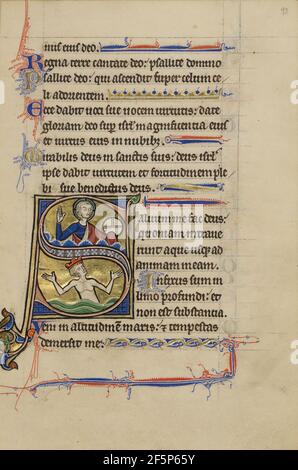 mis eius deo.
Regna terre cantate deo: psallite domino
sallite deo: qui ascendit super celum ce
li ad orientem.
Ecce dabit voci sue vocem virtutis: date
gloriam deo sup isrl magnificentia eius
et virtus eius in nubib;
Mirabilis deus in sanctis suis: deus isrl
ipse dabit virtutem et fortitudinem ple
bi sue benedictus deus.
Salvum me fac deus:
quoniam intrave
runt aque usq; ad
animam meam.
Infixus sum in
limo profundi: et
non est substantia.
Veni in altitudinē maris: et tempestas
demersit me.
alamy
Image ID: 2F5P65Y
www.alamy.com